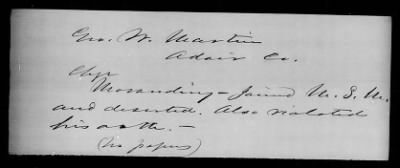 Geo. W. Martin
Adair Co.
Chge
Marauding - Joined M. S. M.
and deserted. Also violated
his oath. -
(no papers)